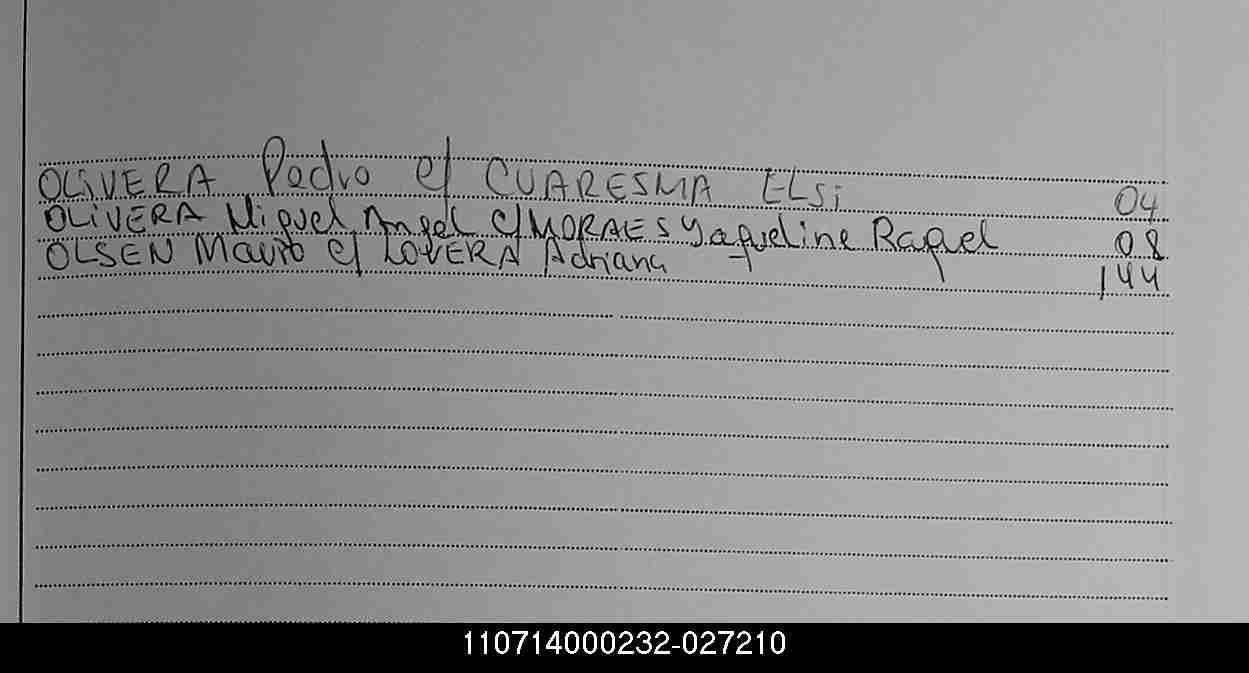 OLIVERA Pedro c/ CUARESMA ELSi 04
OLiVERA Miguel Angel c/ MORAES Yaqueline Raquel 08
OLSEN Mauro c/ LOVERA Adriana 144
110714000232-027210